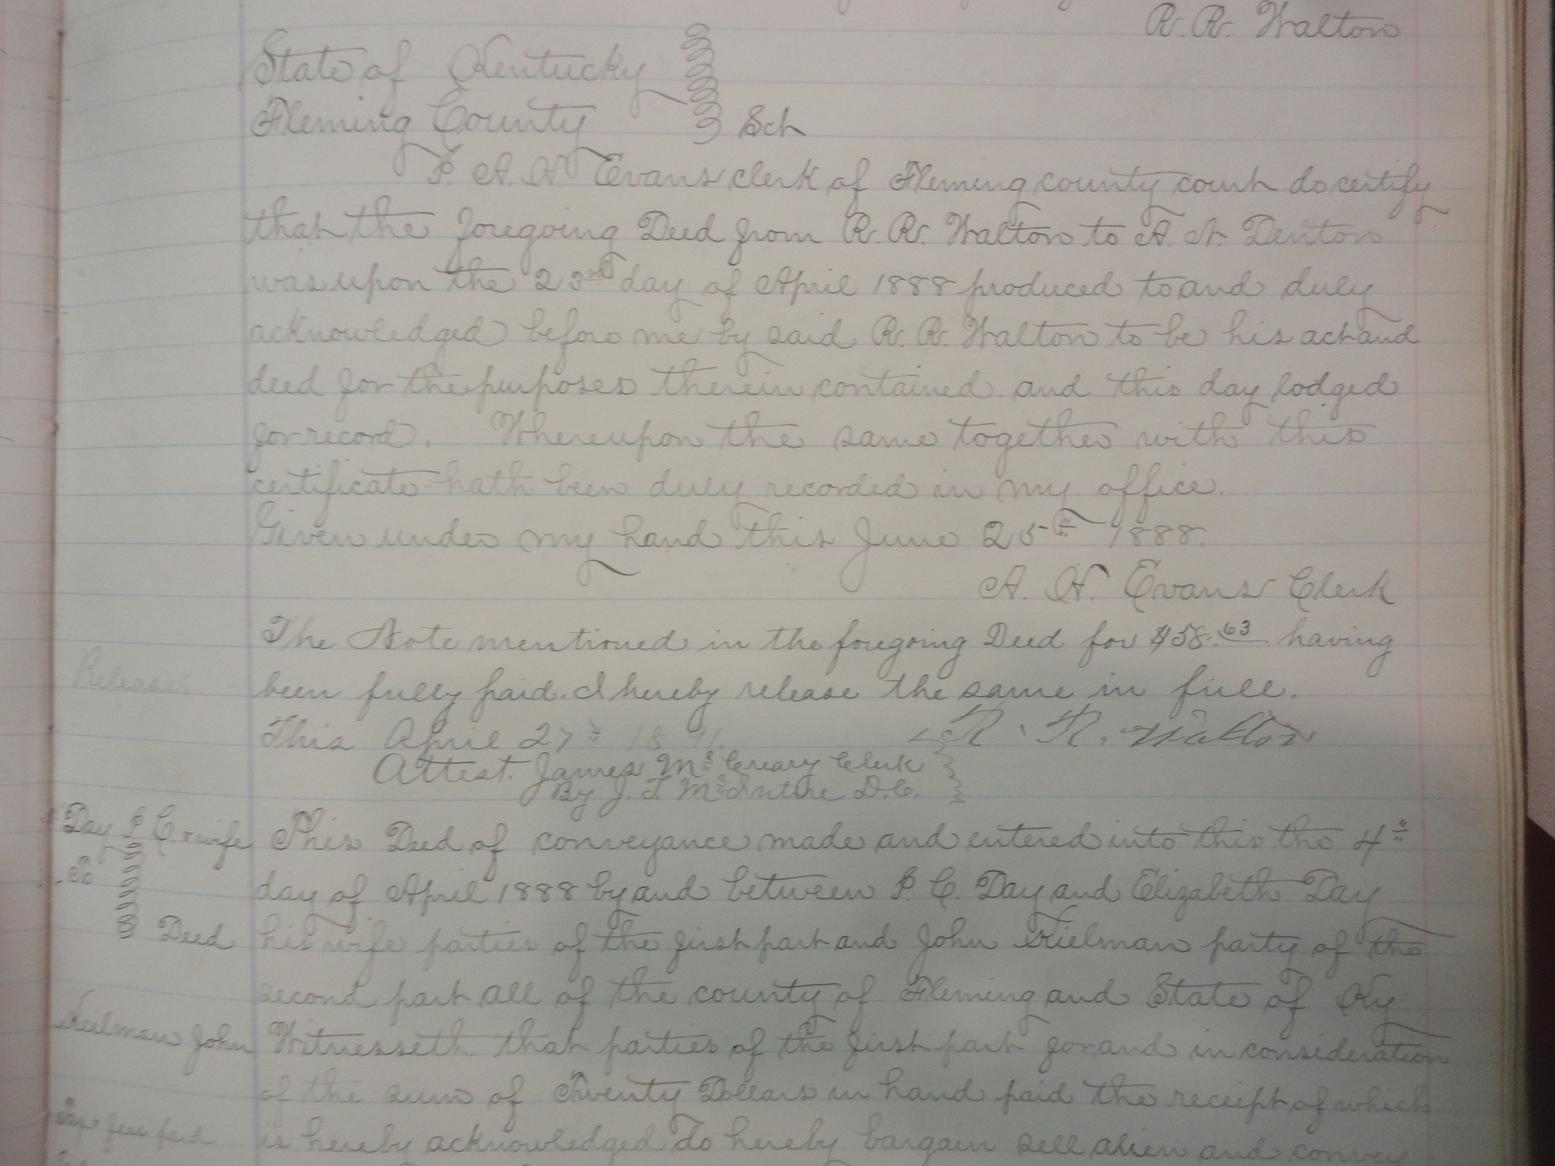 R. R. Walton
State of Kentucky
Fleming County } Sch
I A. N. Evans clerk of Fleming county court do certify
that the foregoing Deed from R. R. Walton to A. A. Denton
was upon the 23rd day of April 1888 produced to and duly
acknowledged before me by said R. R. Walton to be his act and
deed for the purposes therein contained and this day lodged
for record. Whereupon the same together with this
certificate hath been duly recorded in my office.
Given under my hand this June 25th 1888.
A. N. Evans Clerk
The Note mentioned in the foregoing Deed for $58.63 having
Release
been fully paid. I hereby release the same in full.
This April 27th 1891. R. R. Walton
Attest. James McCreary Clerk
By J. T. McIntire D.C.
Day P C & wife This Deed of conveyance made and entered into this the 4th
To day of April 1888 by and between P. C. Day and Elizabeth Day
Deed his wife parties of the first part and John Heilman party of the
second part all of the county of Fleming and State of Ky
Heilman John Witnesseth that parties of the first part for and in consideration
of the sum of Twenty Dollars in hand paid the receipt of which
Tax & fees paid is hereby acknowledged do hereby bargain sell alien and convey